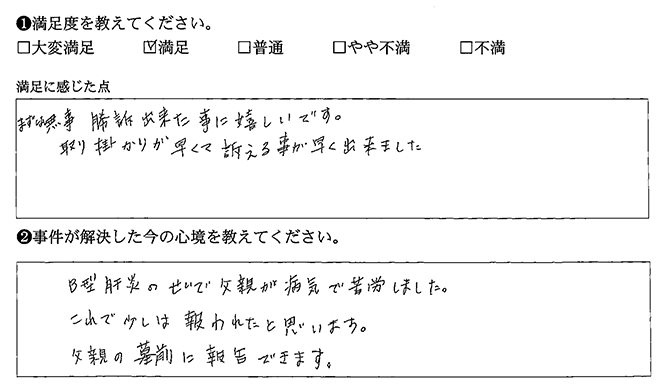 ❶満足度を教えてください。
□大変満足 ☑満足 □普通 □やや不満 □不満
満足に感じた点
まずは無事 勝訴出来た事に嬉しいです。
取り掛かりが早くて訴える事が早く出来ました
❷事件が解決した今の心境を教えてください。
B型肝炎のせいで父親が病気で苦労しました。
これで少しは報われたと思います。
父親の墓前に報告できます。